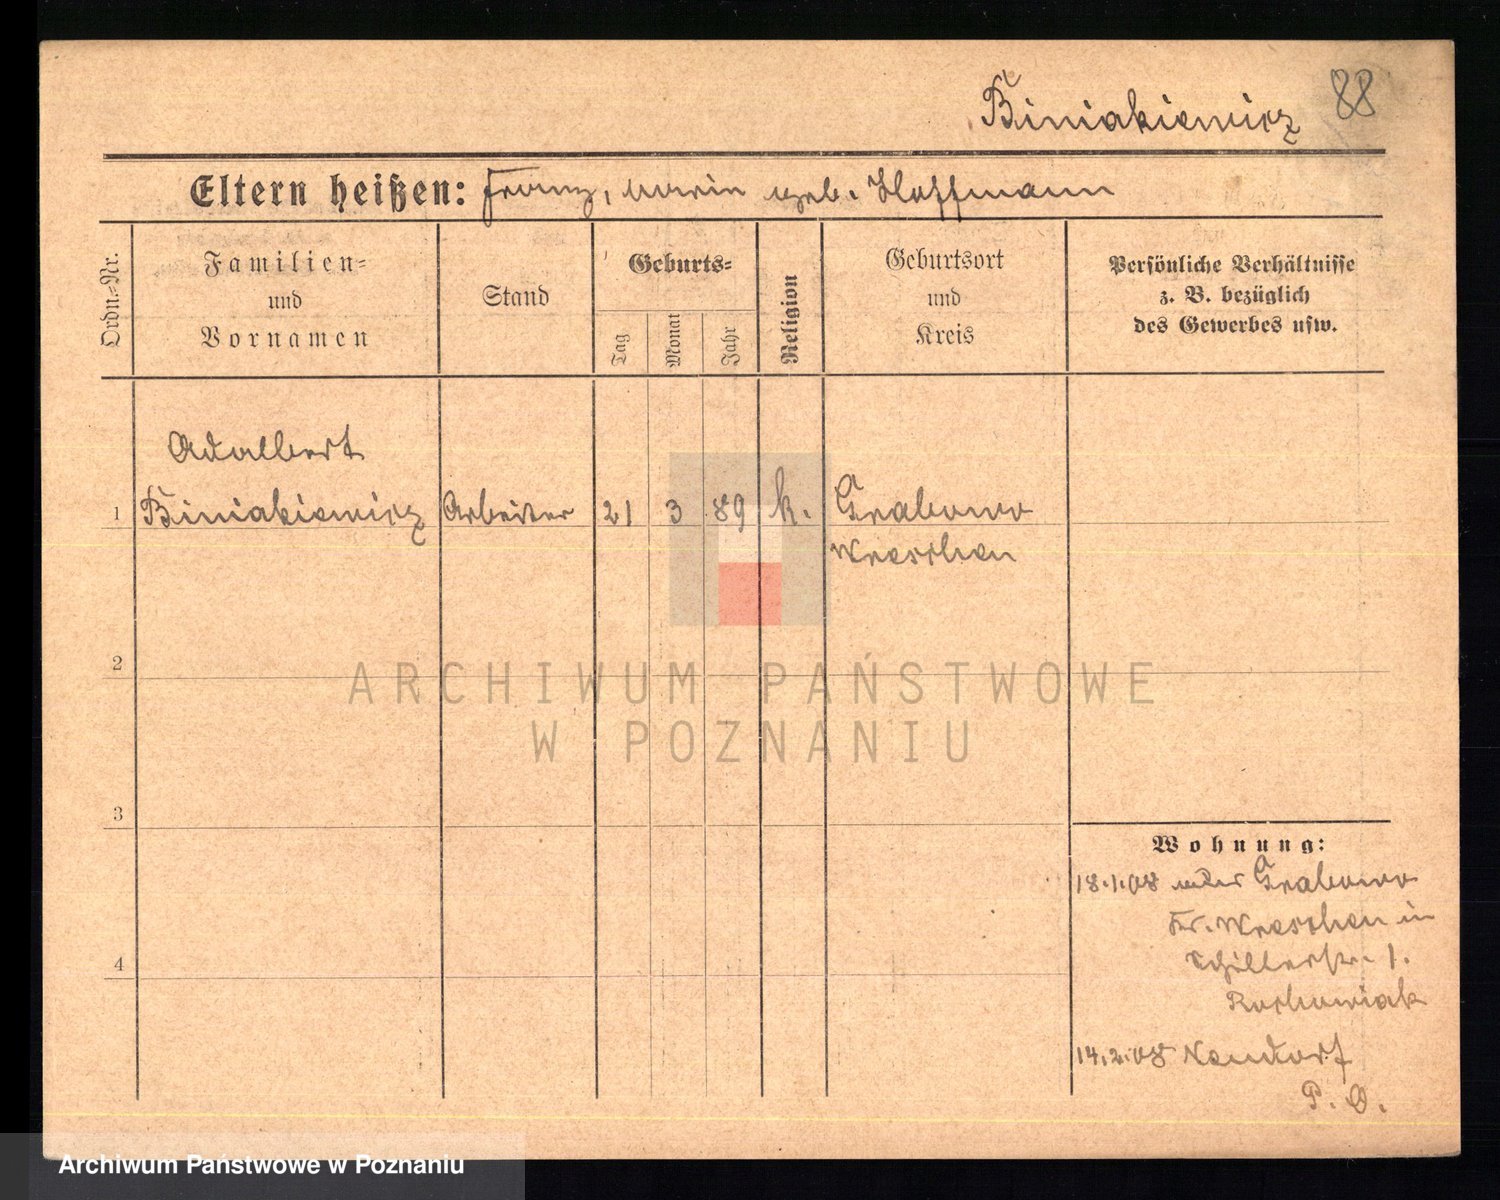 88
Biniakiewicz
Eltern heißen: Franz, Maria geb. Hoffmann
Ordn.-Nr.
Familien-
und
Vornamen
Stand
Geburts-
Tag
Monat
Jahr
Religion
Geburtsort
und
Kreis
Persönliche Verhältnisse
z. B. bezüglich
des Gewerbes usw.
Adalbert
1 Biniakiewicz Arbeiter 21 3 89 k. Grabowo
Wreschen
2
ARCHIWUM PAŃSTWOWE
W POZNANIU
3
Wohnung:
18.1.08 Grabowo
Kr. Wreschen in
Schillerstr. 1.
4
14.2.08 Neudorf
P. O.
Archiwum Państwowe w Poznaniu